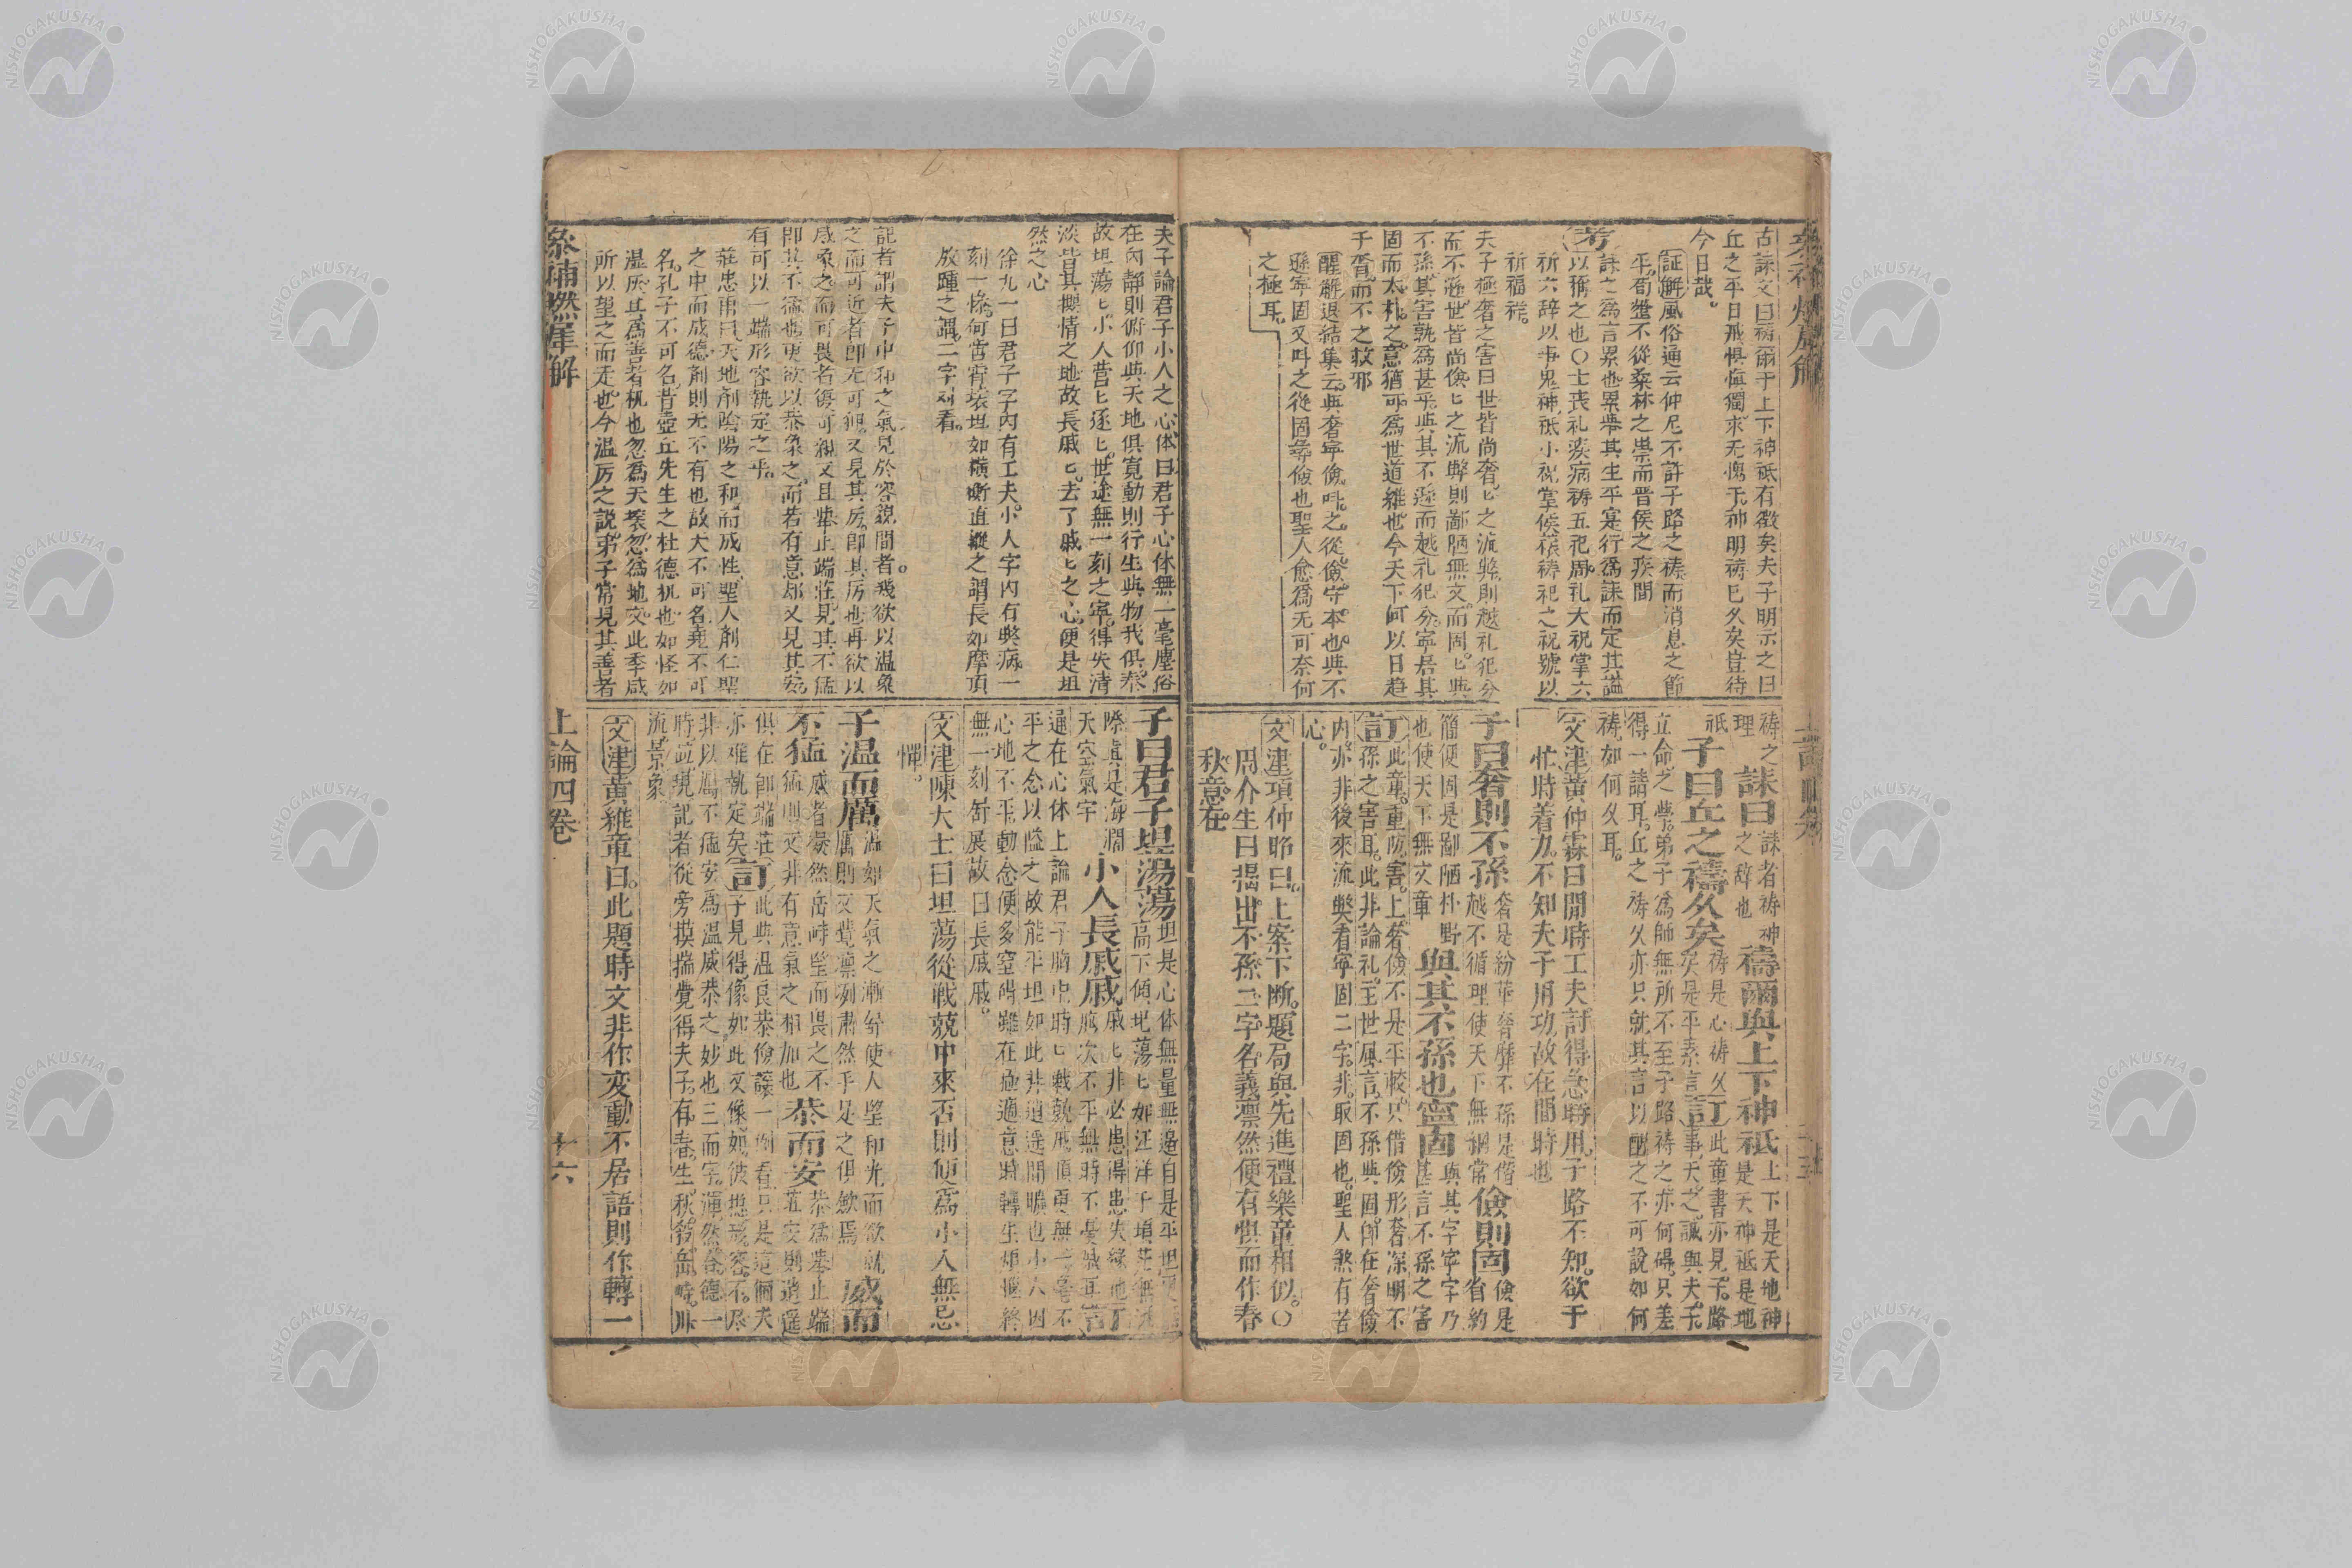 古誄文曰禱爾于上下神祗有徵矣夫子明示之曰
丘之平日戒惧悔獨求无愧于神明禱已久矣豈待
今日哉。
証解風俗通云仲尼不許子路之禱而消息之節
平荀罃不從桑林之祟而晋侯之疾間
誄之爲言累也累舉其生平寔行爲誄而定其謚
以稱之也〇士丧礼疾病祷五祀周礼大祝掌六
祈六辞以事鬼神祗小祝掌侯禳祷祀之祝號以
祈福祥。
夫子極奢之害曰世皆尚奢匕之流弊則越礼犯分
而不遜世皆尚倹匕之流弊則鄙陋無文而固匕與
不孫其害孰爲甚乎與其不遜而越礼犯分寧居其
固而太朴之意猶可爲世道維也今天下何以日趋
于奢而不之救邪
醒解退結集云與奢寧倹呌之從倹守本也與不
遜寧固又呌之從固尋倹也聖人愈爲无可奈何
之極耳。
禱之理
誄曰 誄者祷神之辞也 禱爾與上下神祗 上下是天地神是天神祗是地
祗 子曰丘之禱久矣 祷是心祷久矣是平素言 訂 此章書亦見子路事天之誠與夫子
立命之學弟子爲師無所不至子路祷之亦何碍只差
得一請耳丘之祷久亦只就其言以酬之不可說如何
祷如何久耳。
文津黄仲霖曰閒時工夫討得急時用子路不知欲于
忙時着力不知夫子用功故在閒時也
子曰奢則不孫 奢是紛華奢靡不孫是僣越不循理使天下無綱常 儉則固 倹是省約
簡便固是鄙陋朴野也使天下無文章 與其不孫也寧固 與其字寧字乃甚言不孫之害
訂 此章重防害上奢倹不是平較只借倹形奢深明不孫之害耳此非論礼主世風言不孫與固卽在奢倹
内亦非後來流弊看寧固二字非取固也聖人煞有苦
心。
文津項仲昭曰上案下断題局與先進禮樂章相似。〇
周介生曰揭出不孫二字名義凛然便有惧而作春
秋意在
夫子論君子小人之心体曰君子心休無一毫塵俗
在内靜則俯仰與天地俱寬動則行生與物我俱泰
故坦荡匕小人营匕逐匕世途無一刻之寧得失清
淡皆其櫻情之地故長戚匕去了戚匕之心便是坦
然之心
徐九一曰君子字内有工夫小人字内有獘病一
刻一條何啻霄壤坦如横斷直縱之謂長如摩頂
放踵之謂二字对看。
記者謂夫子中和之氣見於容貌間者幾欲以温象
之而可近者卽无可狎又見其厉卽其厉也再欲以
威象之而可畏者復可親又且舉止端莊見其不猛
卽其不猛也更欲以恭象之而若有意却又見其安
有可以一端形容執定之乎。
莊忠甫曰天地剤陰陽之和而成性聖人剤仁聖
之中而成德剤則无不有也故大不可名堯不可
名孔子不可名昔壺丘先生之杜德机也如怪如
湿灰其爲善者机也忽爲天壤忽爲地文此季咸
所以望之而走也今温厉之説弟子常見其善者
子曰君子坦湯蕩 坦是心体無量無邊自是平坦
小人長戚戚
通在心体上論君子胸中時匕戰兢
平之念以隘之故能平坦如此非逍遥閒曠也小人因
心地不平動念便多窒碍雖在極適意時轉生
無一刻舒展故曰長戚戚。
文津陳大士曰坦蕩從戦兢中來否則便爲小人無忌
憚。
子温而厲 温如天氣之漸舒使人望和光而欲就厲則又覺凛冽肅然乎 威而
不猛 威者儼然岳峙望而畏之不猛則又非有意氣之相加也 恭而安 恭爲举止端莊安則逍遥
俱在卽端莊 訂 此與温良恭倹讓一例看只是這個夫子見得像如此又像如彼
亦难執定矣
非以厲不猛安爲温威恭之妙也三而字渾然
時竝現記者從旁摸揣覺得夫子有春生秋
流景象
文津黄維章曰此題時文非作変動不居語則作轉一
叅補燃犀解 上論四卷 十六